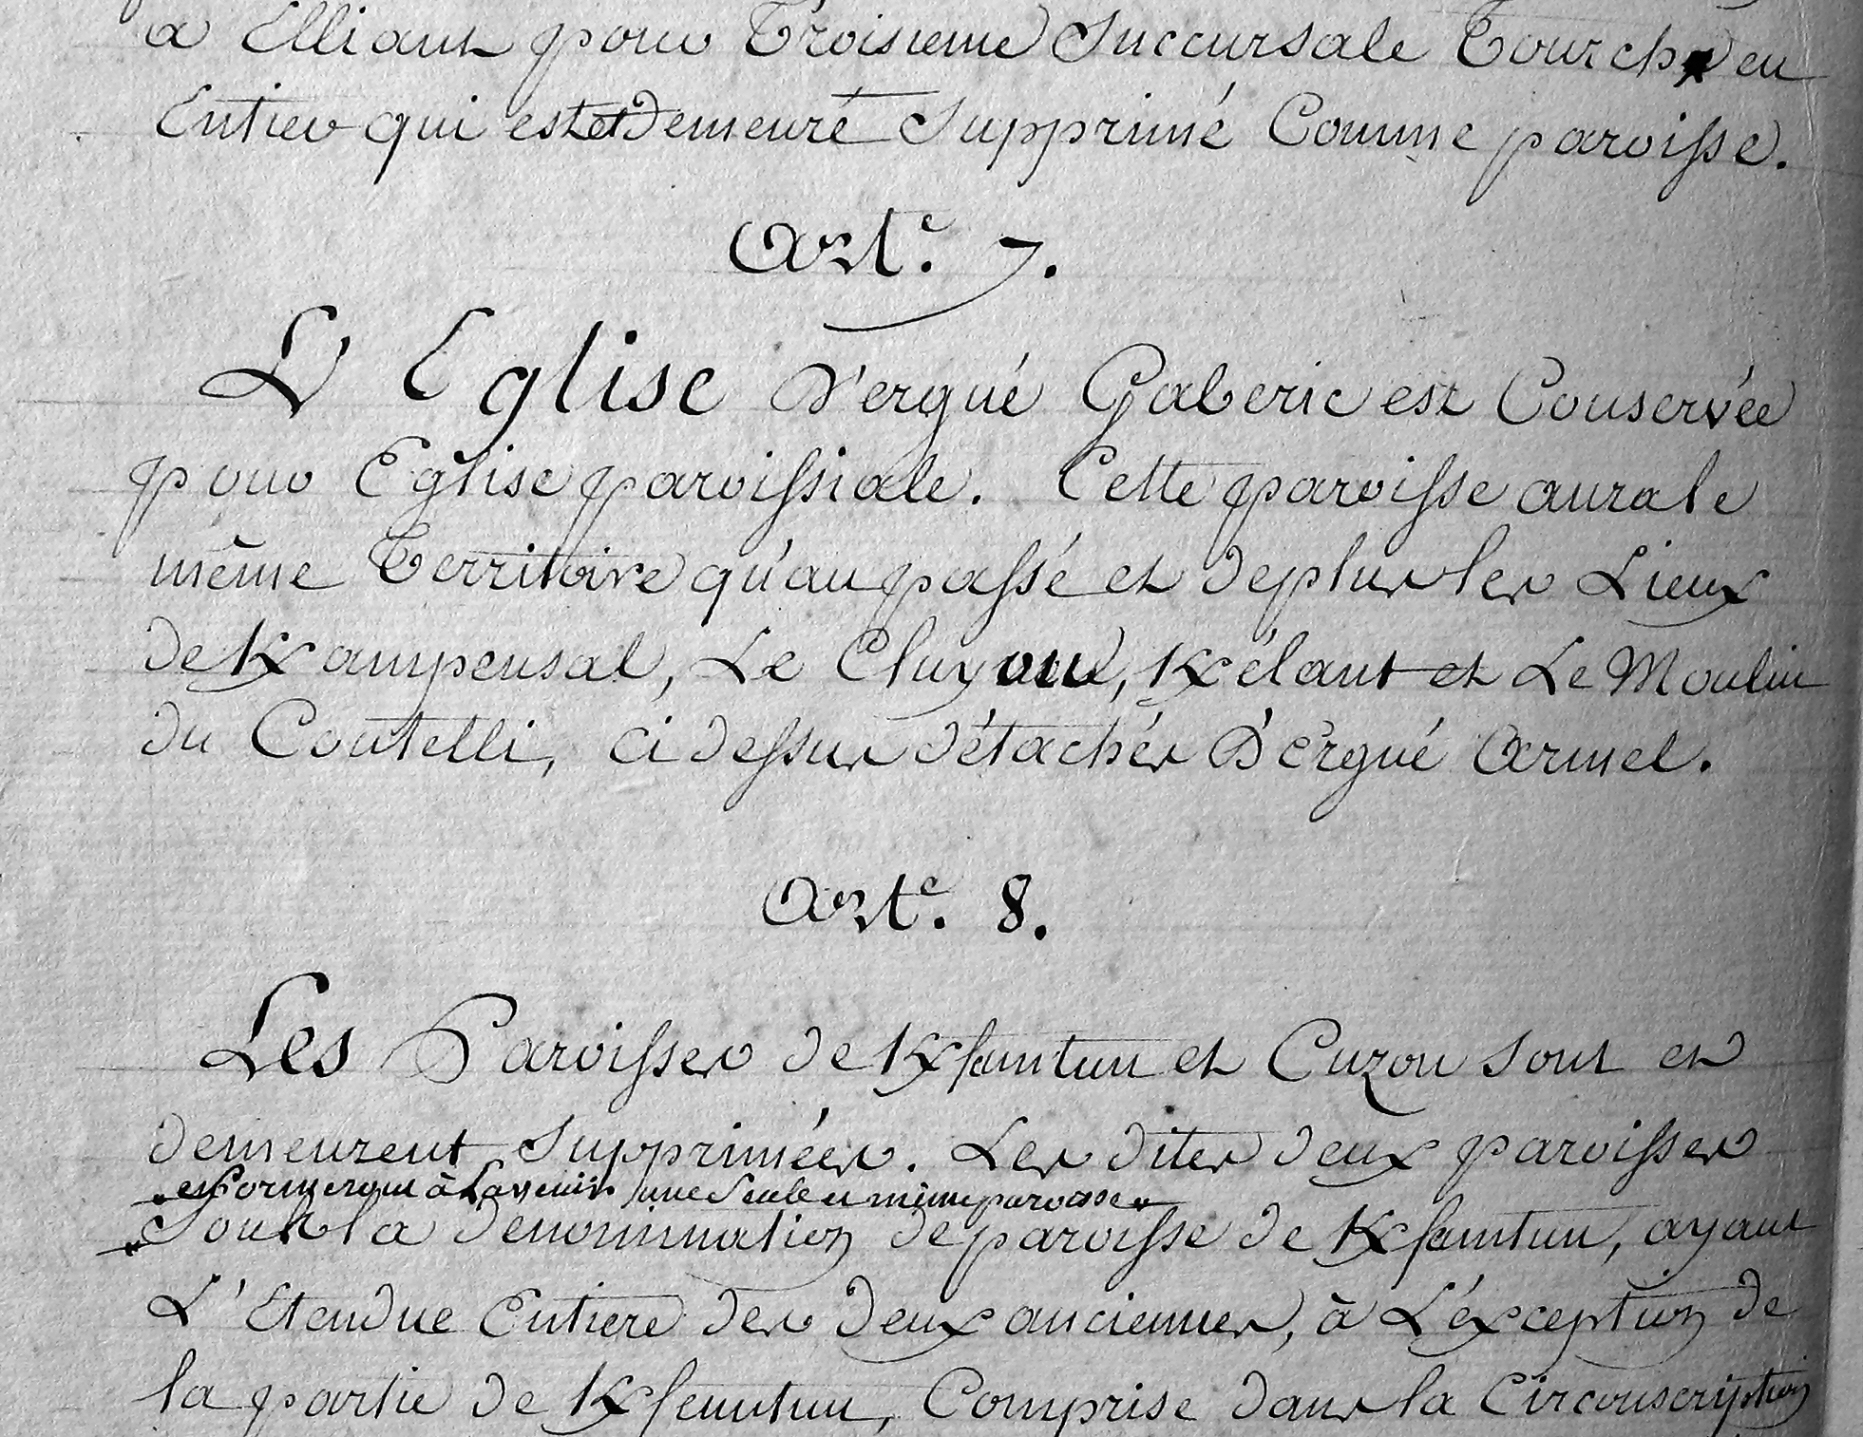 a Elliant pour Troisieme Succursale Tourch en
Entier qui est et Demeure Supprimé Comme paroisse.
Art.e 7.
L'Eglise d'ergué Gaberic est Conservée
pour Eglise paroissiale. Cette paroisse aura le
même Territoire qu'au passé et de plus les Lieux
de Kampensal, Le Cluyou, Kélant et Le Moulin
du Coutelli, ci dessus détachés D'Ergué Armel.
Art.e 8.
Les Paroisses de Kfeunteun et Cuzon sont et
demeurent Supprimées. Les dites deux paroisses
et formeront à L'avenir une Seule et même paroisse
Sous la denomination de paroisse de Kfeunteun, ayant
L'Etendue Entiere des deux anciennes, à L'éxception de
la partie de Kfeunteun, Comprise dans la Circonscription